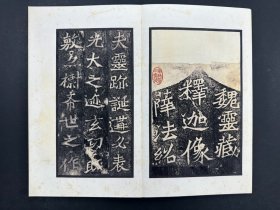 魏靈藏
釋迦像
薛法紹
夫靈跡誕遘必表
光大之迹玄功既
敷亦標希世之作